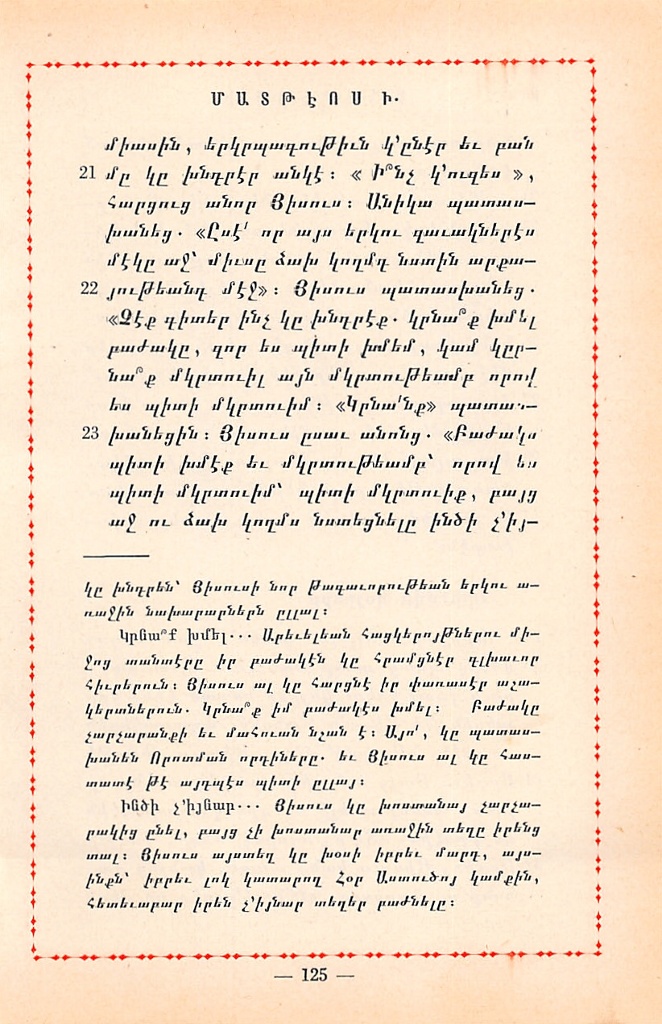 ՄԱՏԹԷՈՍ Ի.
միասին, երկրպագութիւն կ՚ընէր եւ բան
21 մը կը խնդրէր անկէ։ « Ի՞նչ կ՚ուզես »,
հարցուց անոր Յիսուս։ Անիկա պատաս–
խանեց. «Ըսէ՛ որ այս երկու զաւակներէս
մէկը աջ՝ միւսը ձախ կողմդ նստին արքա–
22 յութեանդ մէջ»։ Յիսուս պատասխանեց.
«Չէք գիտեր ինչ կը խնդրէք. կրնա՞ք խմել
բաժակը, զոր ես պիտի խմեմ, կամ կըր–
նա՞ք մկրտուիլ այն մկրտութեամբ որով
ես պիտի մկրտուիմ։ «Կրնա՛նք» պատաս–
23 խանեցին։ Յիսուս ըսաւ անոնց. «Բաժակս
պիտի խմէք եւ մկրտութեամբ՝ որով ես
պիտի մկրտուիմ՝ պիտի մկրտուիք, բայց
աջ ու ձախ կողմս նստեցնելը ինծի չ՚իյ–
կը խնդրեն՝ Յիսուսի նոր Թագաւորութեան երկու ա–
ռաջին նախարարներն ըլլալ։
Կրնա՞ք խմել... Արեւելեան հացկերոյթներու մի–
ջոց տանտէրը իր բաժակէն կը հրամցնէր գլխաւոր
հիւրերուն։ Յիսուս ալ կը հարցնէ իր փառասէր աշա–
կերտներուն. Կրնա՞ք իմ բաժակէս խմել։ Բաժակը
չարչարանքի եւ մահուան նշան է։ Այո՛, կը պատաս–
խանեն Որոտման որդիները. եւ Յիսուս ալ կը հաս–
տատէ թէ այդպէս պիտի ըլլայ։
Ինծի չ՚իյնար... Յիսուս կը խոստանայ չարչա–
րակից ընել, բայց չի խոստանար առաջին տեղը իրենց
տալ։ Յիսուս այստեղ կը խօսի իբրեւ մարդ, այս–
ինքն՝ իբրեւ լոկ կատարող Հօր Աստուծոյ կամքին,
հետեւաբար իրեն չ՚իյնար տեղեր բաժնելը։
— 125 —